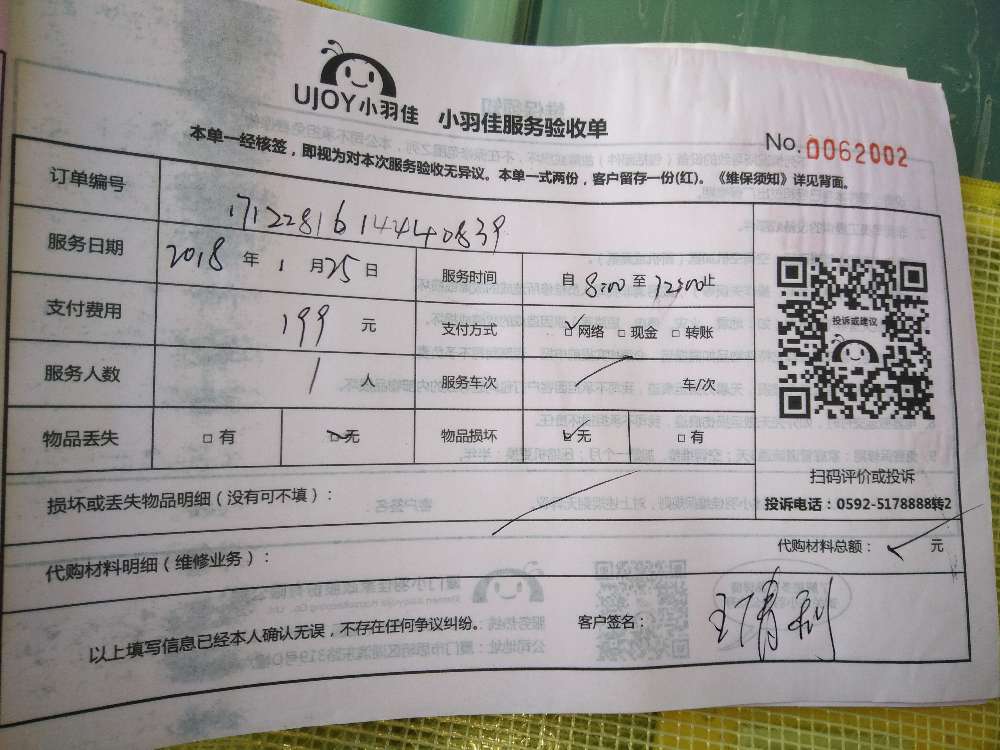 UJOY小羽佳 小羽佳服务验收单
No. 0062002
本单一经核签，即视为对本次服务验收无异议。本单一式两份，客户留存一份(红)。《维保须知》详见背面。
订单编号 1712281614440839
服务日期 2018 年 1 月 25 日 服务时间 自 8:00 至 12:00 止
支付费用 199 元 支付方式 网络 现金 转账
服务人数 1 人 服务车次 车/次
物品丢失 有 无 物品损坏 无 有
投诉或建议
扫码评价或投诉
投诉电话：0592-5178888转2
损坏或丢失物品明细（没有可不填）：
代购材料明细（维修业务）： 代购材料总额： 元
以上填写信息已经本人确认无误，不存在任何争议纠纷。 客户签名：